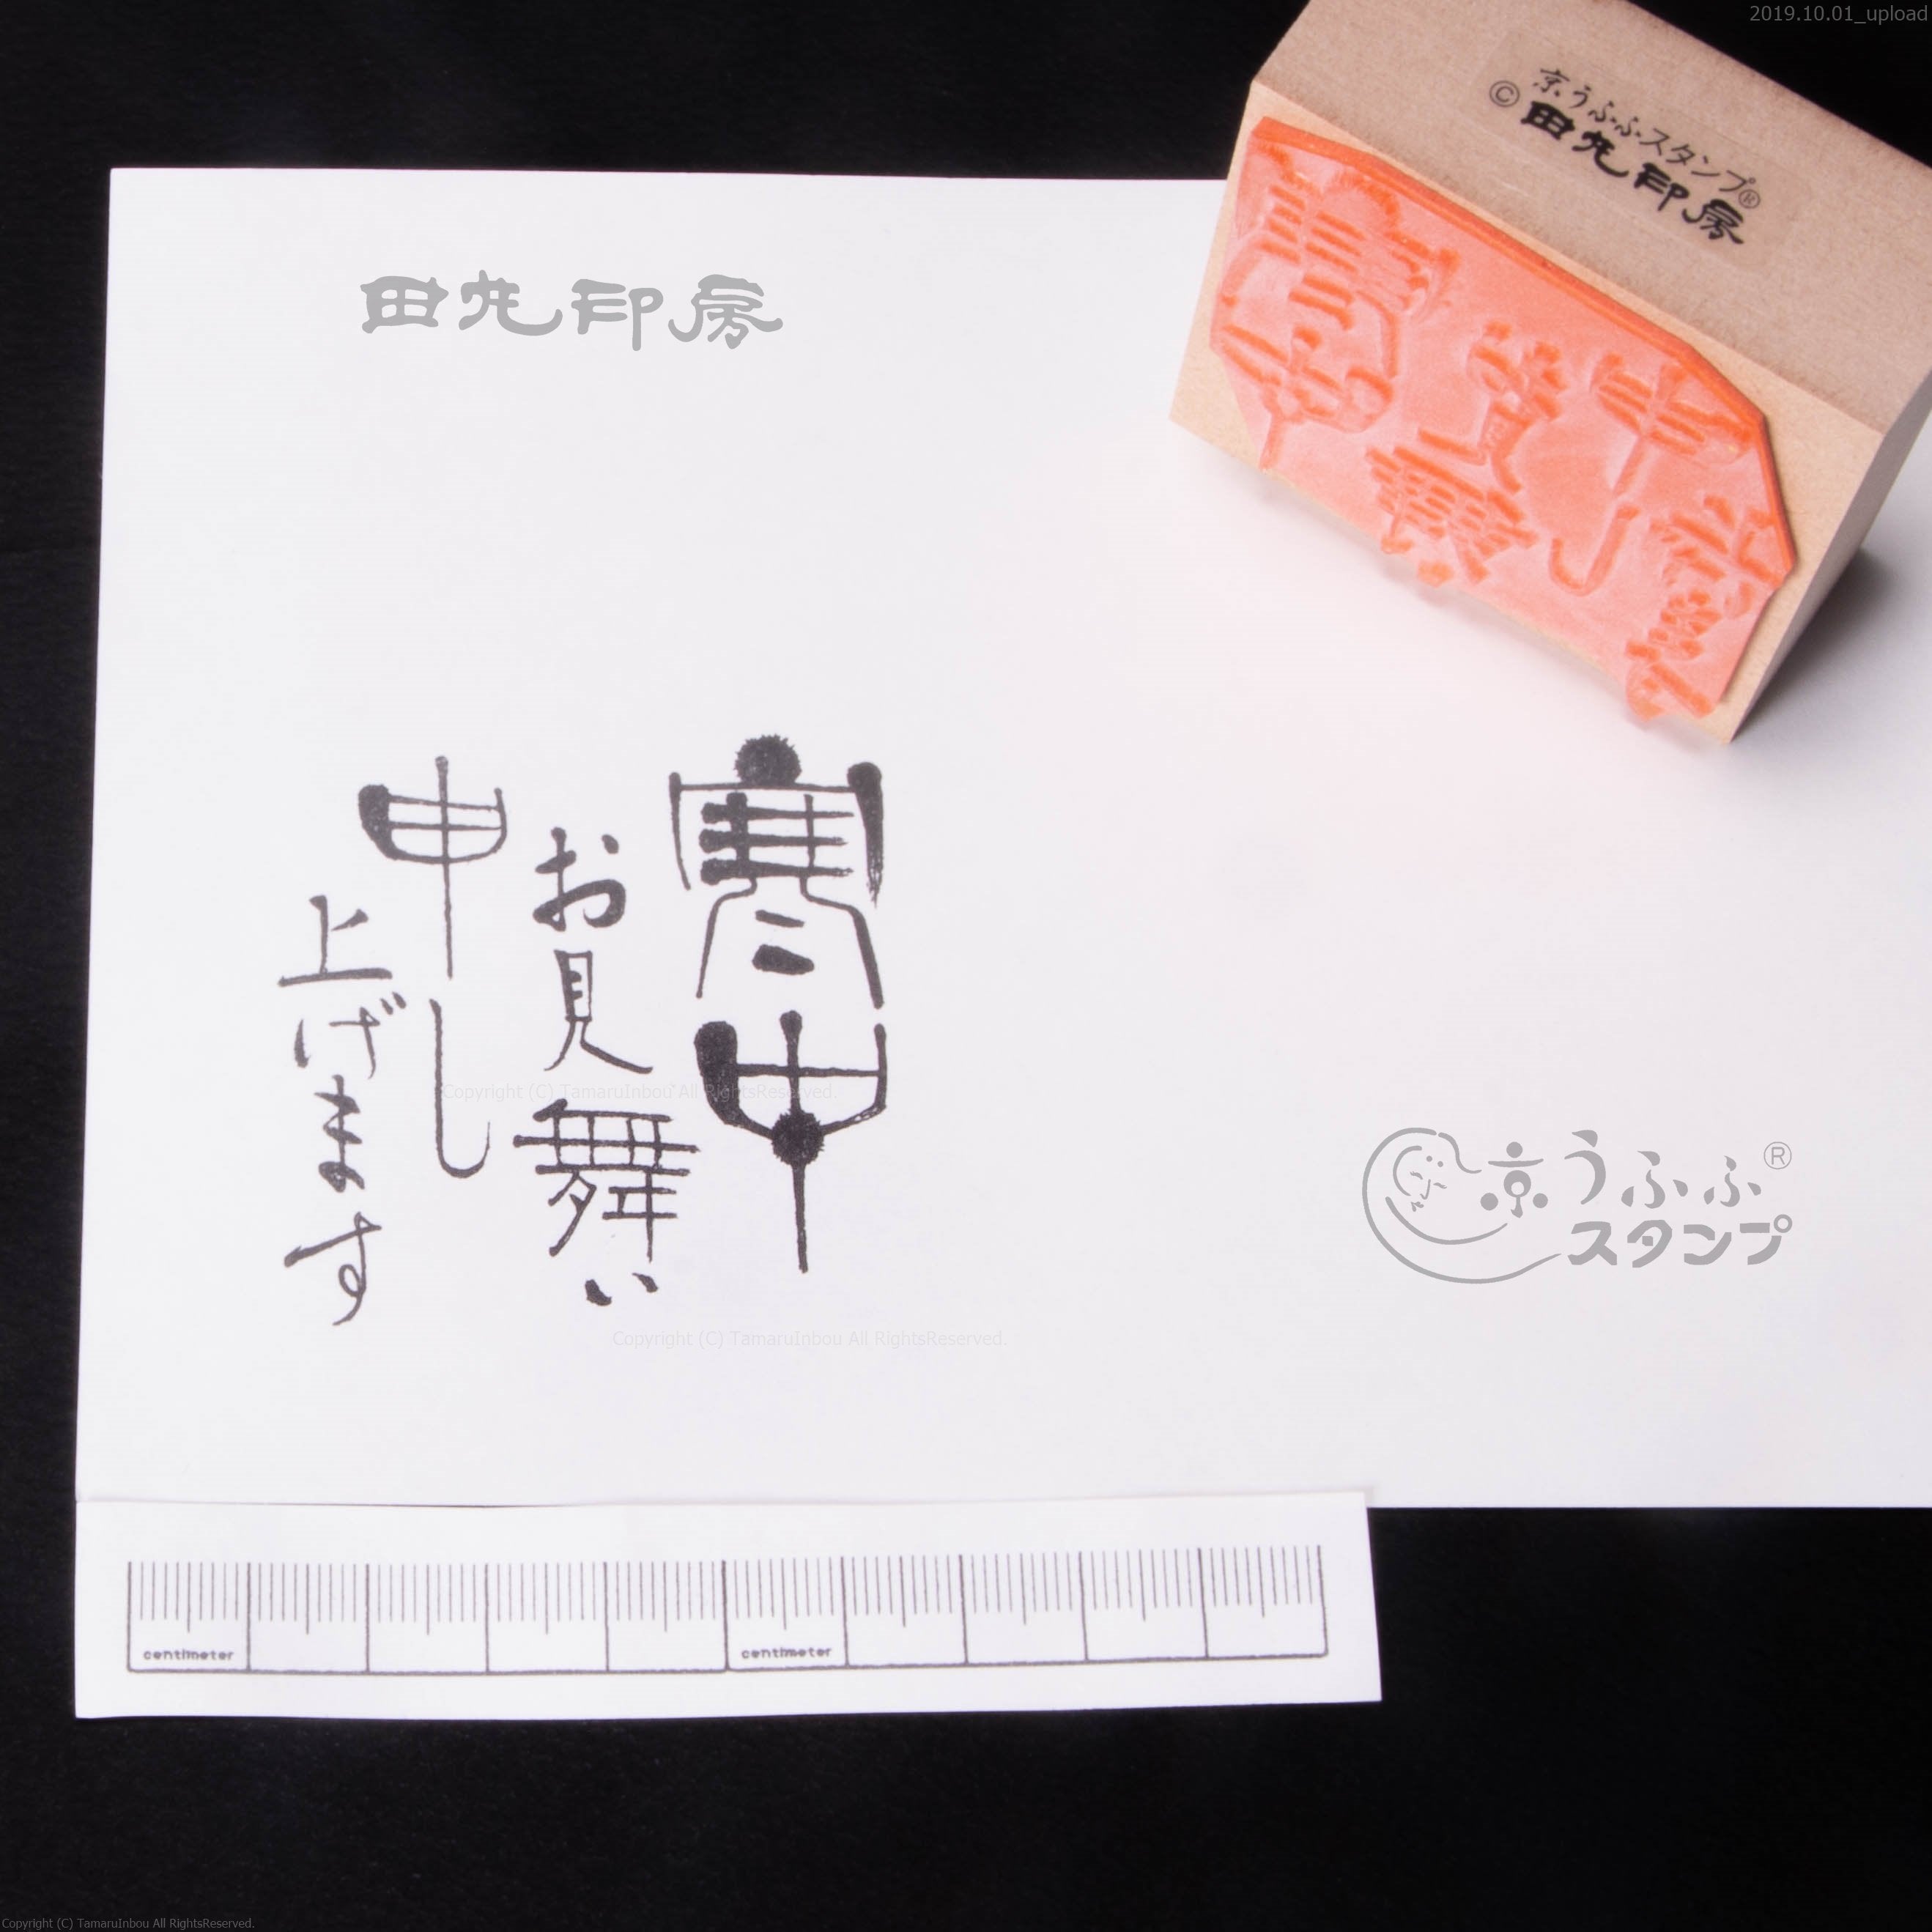 2019.10.01_upload
京うふふスタンプ®
© 田丸印房
田丸印房
寒中
お見舞い
申し
上げます
Copyright (C) TamaruInbou All RightsReserved.
京うふふ®
スタンプ
Copyright (C) TamaruInbou All RightsReserved.
centimeter
centimeter
Copyright (C) TamaruInbou All RightsReserved.